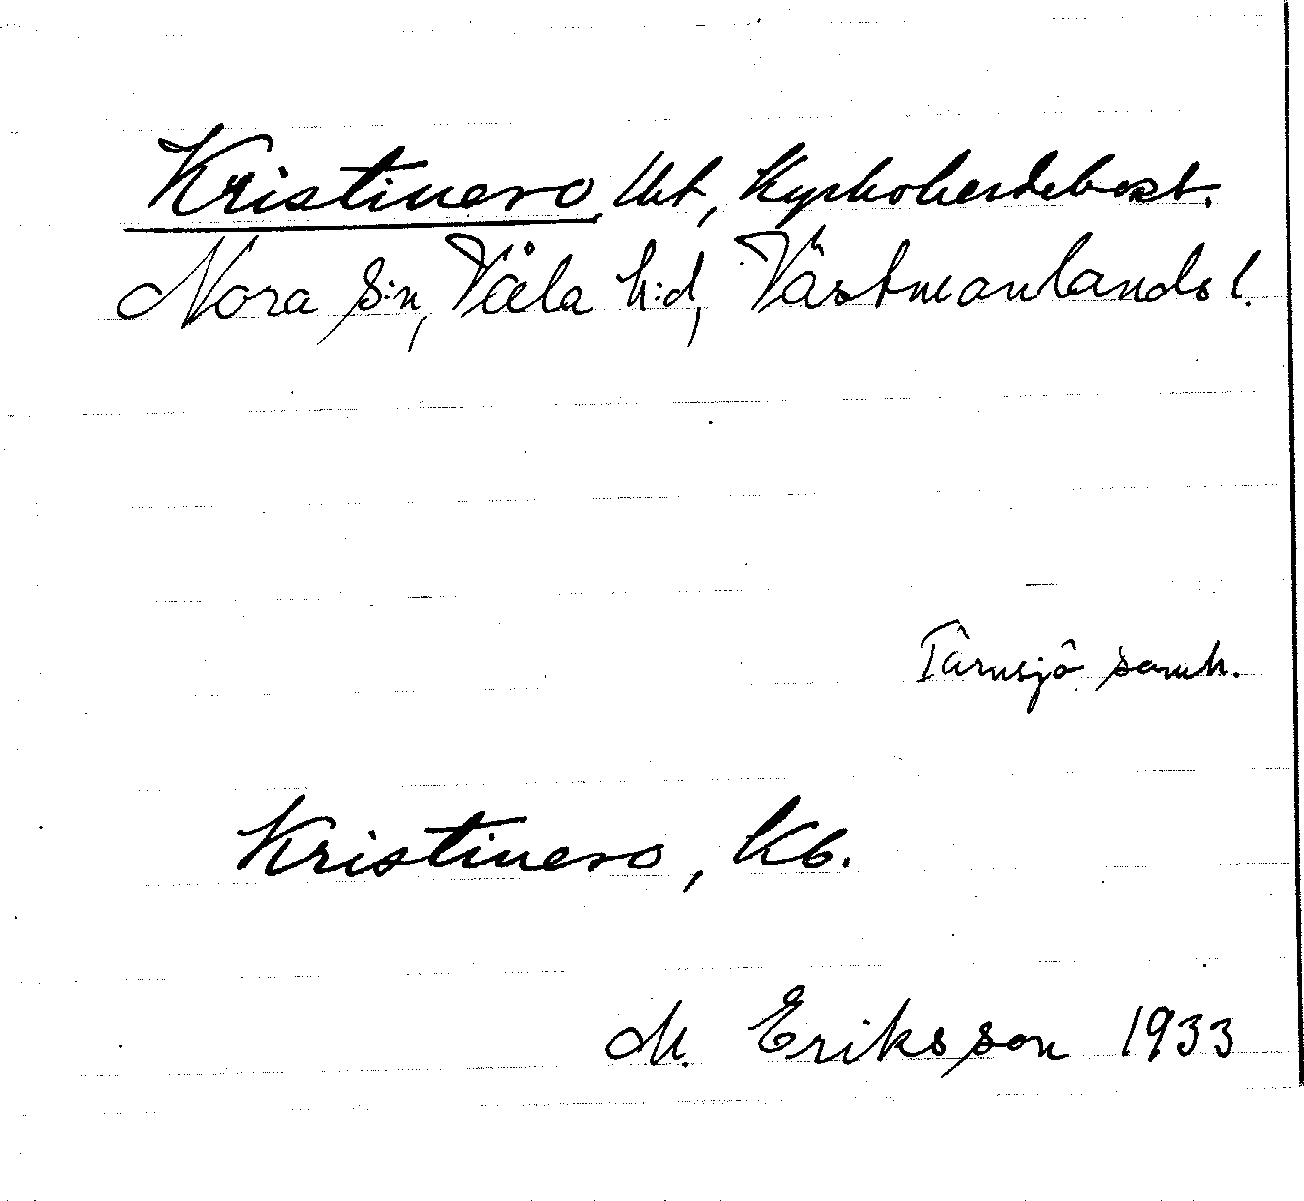 Kristinero, Ut, Kyrkoherdebost.
Nora s:n, Våla h:d, Västmanlands l.
Tärnsjö samh.
Kristinero, Kb.
M. Eriksson 1933